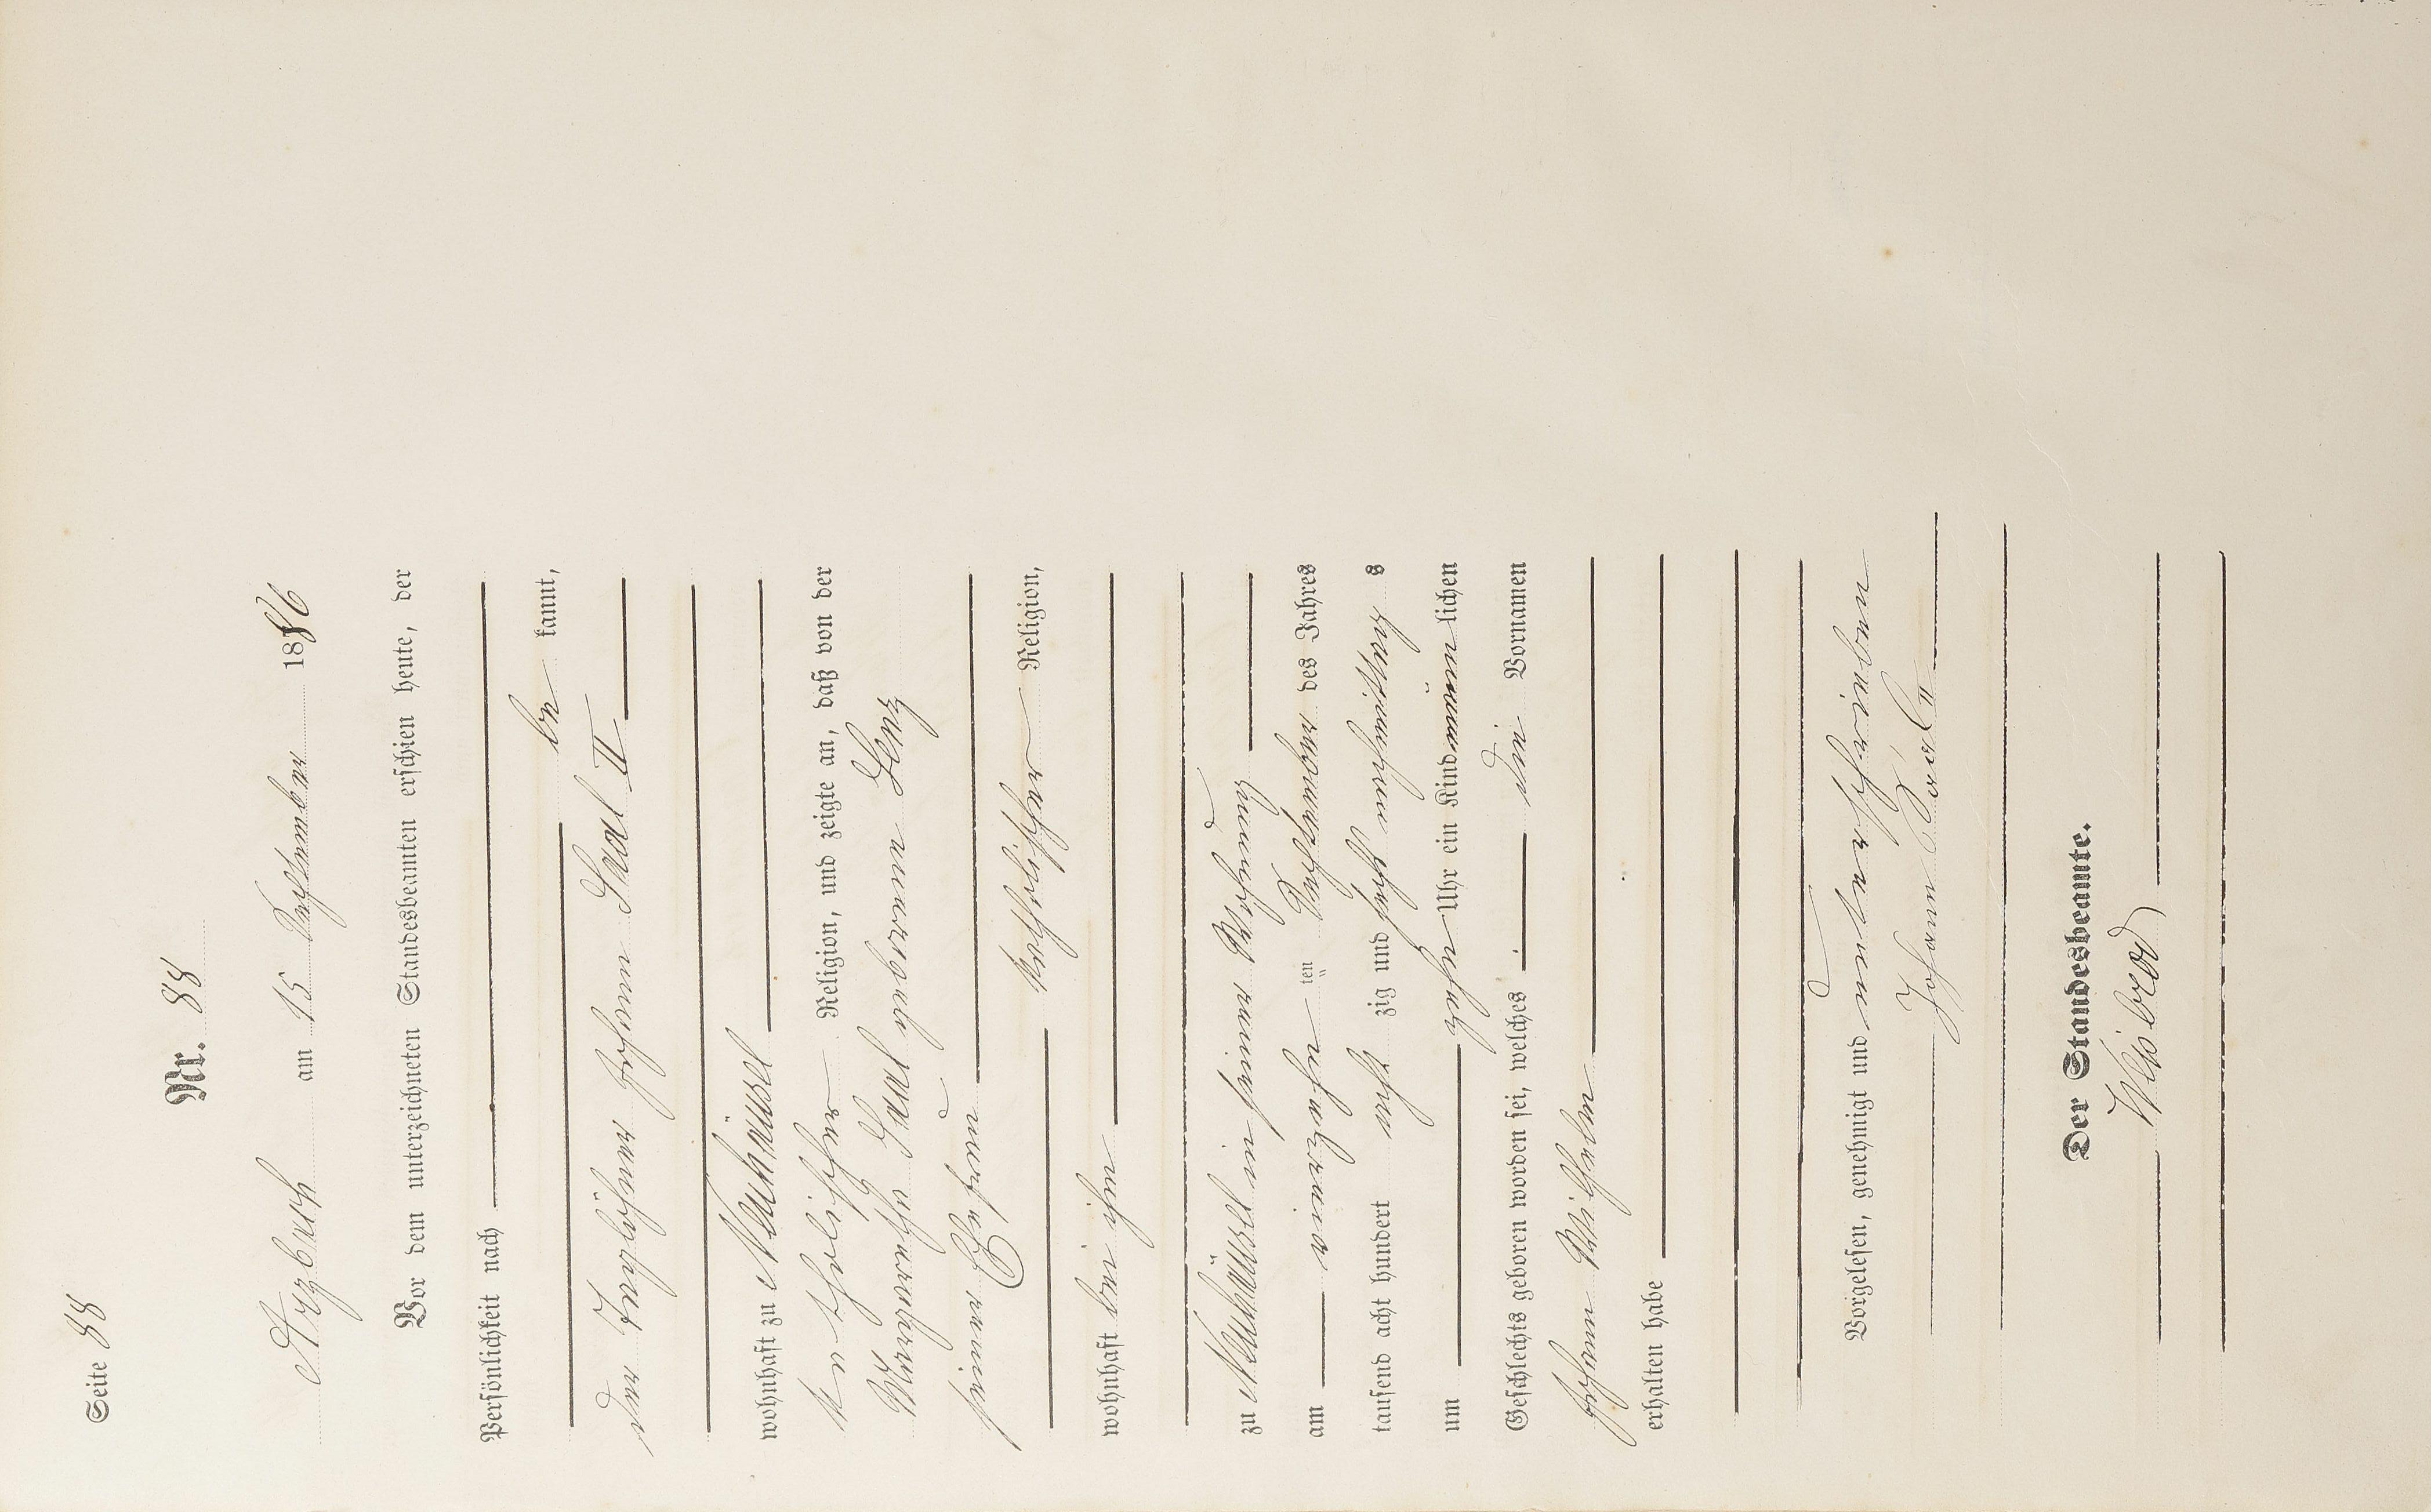 Seite 88
Nr. 88
Arzbach am 15 September 1886
Vor dem unterzeichneten Standesbeamten erschien heute, der
Persönlichkeit nach
be kannt,
der Taglöhner Johann Saal II
wohnhaft zu Neuhäusel
katholischer Religion, und zeigte an, daß von der
Margaretha Saal geborenen Lenz
seiner Ehefrau
katholischer Religion,
wohnhaft bei ihm
zu Neuhäusel in seiner Wohnung
am vierzehn ten September des Jahres
tausend acht hundert acht zig und sechs nachmittags
um zehn Uhr ein Kind männlichen
Geschlechts geboren worden sei, welches die Vornamen
Johann Wilhelm
erhalten habe
Vorgelesen, genehmigt und unterschrieben
Johann Saal II
Der Standesbeamte.